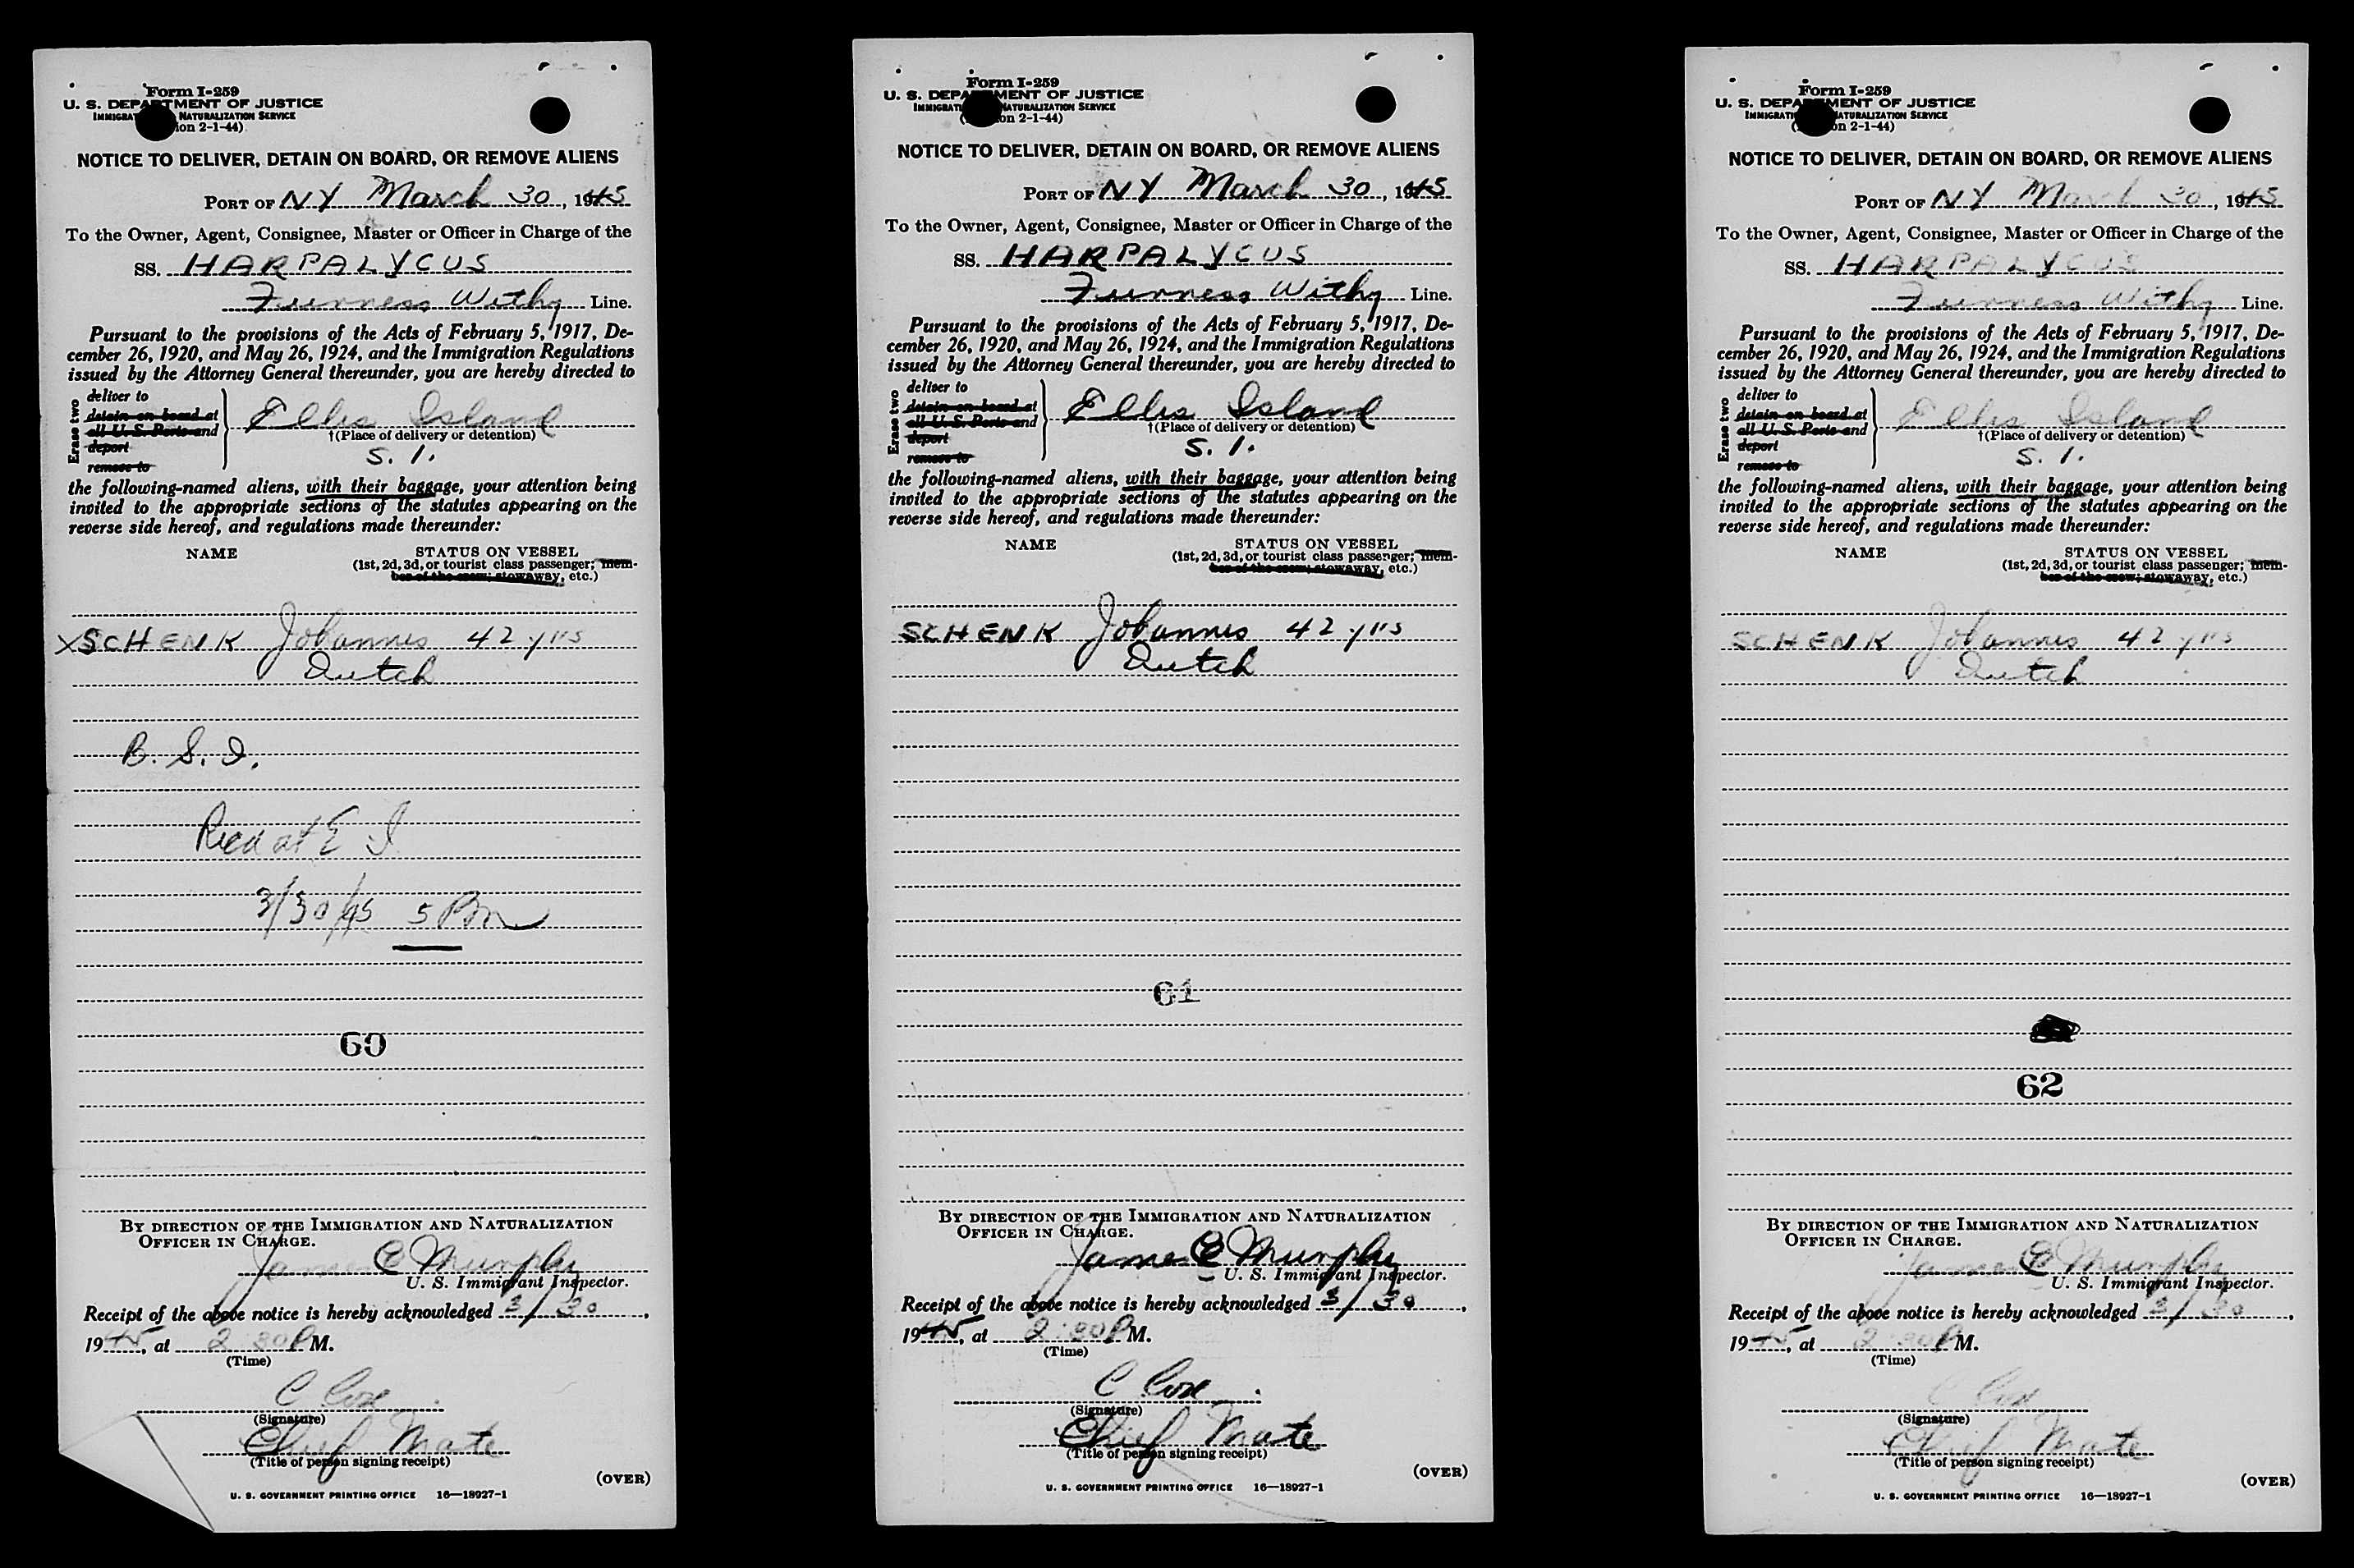 Form I-259
U. S. DEPARTMENT OF JUSTICE
IMMIGRA NATURALIZATION SERVICE
ion 2-1-44)
NOTICE TO DELIVER, DETAIN ON BOARD, OR REMOVE ALIENS
PORT OF NY March 30, 1945
To the Owner, Agent, Consignee, Master or Officer in Charge of the
SS. HARPALYCUS
Furness Withy Line.
Pursuant to the provisions of the Acts of February 5, 1917, De-
cember 26, 1920, and May 26, 1924, and the Immigration Regulations
issued by the Attorney General thereunder, you are hereby directed to
Erase two
deliver to
detain on board at
all U. S. Ports and
deport
remove to
Ellis Island
†(Place of delivery or detention)
S. I.
the following-named aliens, with their baggage, your attention being
invited to the appropriate sections of the statutes appearing on the
reverse side hereof, and regulations made thereunder:
NAME STATUS ON VESSEL
(1st, 2d, 3d, or tourist class passenger; mem-
ber of the crew; stowaway, etc.)
XSCHENK Johannes 42 yrs
Dutch
B. S. I.
Recd at E I
3/30/45 5 PM
60
BY DIRECTION OF THE IMMIGRATION AND NATURALIZATION
OFFICER IN CHARGE.
James E Murphy
U. S. Immigrant Inspector.
Receipt of the above notice is hereby acknowledged 3/30,
1945, at 2:30 P M.
(Time)
C Cox
(Signature)
Chief Mate
(Title of person signing receipt)
(OVER)
U. S. GOVERNMENT PRINTING OFFICE 16—18927-1
Form I-259
U. S. DEPA MENT OF JUSTICE
IMMIGRATI NATURALIZATION SERVICE
( on 2-1-44)
NOTICE TO DELIVER, DETAIN ON BOARD, OR REMOVE ALIENS
PORT OF NY March 30, 1945
To the Owner, Agent, Consignee, Master or Officer in Charge of the
SS. HARPALYCUS
Furness Withy Line.
Pursuant to the provisions of the Acts of February 5, 1917, De-
cember 26, 1920, and May 26, 1924, and the Immigration Regulations
issued by the Attorney General thereunder, you are hereby directed to
Erase two
deliver to
detain on board at
all U. S. Ports and
deport
remove to
Ellis Island
†(Place of delivery or detention)
S. I.
the following-named aliens, with their baggage, your attention being
invited to the appropriate sections of the statutes appearing on the
reverse side hereof, and regulations made thereunder:
NAME STATUS ON VESSEL
(1st, 2d, 3d, or tourist class passenger; mem-
ber of the crew; stowaway, etc.)
SCHENK Johannes 42 yrs
Dutch
61
BY DIRECTION OF THE IMMIGRATION AND NATURALIZATION
OFFICER IN CHARGE.
James E Murphy
U. S. Immigrant Inspector.
Receipt of the above notice is hereby acknowledged 3/30,
1945, at 2:30 P M.
(Time)
C Cox
(Signature)
Chief Mate
(Title of person signing receipt)
(OVER)
U. S. GOVERNMENT PRINTING OFFICE 16—18927-1
Form I-259
U. S. DEPA MENT OF JUSTICE
IMMIGRATI NATURALIZATION SERVICE
( on 2-1-44)
NOTICE TO DELIVER, DETAIN ON BOARD, OR REMOVE ALIENS
PORT OF NY March 30, 1945
To the Owner, Agent, Consignee, Master or Officer in Charge of the
SS. HARPALYCUS
Furness Withy Line.
Pursuant to the provisions of the Acts of February 5, 1917, De-
cember 26, 1920, and May 26, 1924, and the Immigration Regulations
issued by the Attorney General thereunder, you are hereby directed to
Erase two
deliver to
detain on board at
all U. S. Ports and
deport
remove to
Ellis Island
†(Place of delivery or detention)
S. I.
the following-named aliens, with their baggage, your attention being
invited to the appropriate sections of the statutes appearing on the
reverse side hereof, and regulations made thereunder:
NAME STATUS ON VESSEL
(1st, 2d, 3d, or tourist class passenger; mem-
ber of the crew; stowaway, etc.)
SCHENK Johannes 42 yrs
Dutch
62
BY DIRECTION OF THE IMMIGRATION AND NATURALIZATION
OFFICER IN CHARGE.
James E Murphy
U. S. Immigrant Inspector.
Receipt of the above notice is hereby acknowledged 3/30,
1945, at 2:30 P M.
(Time)
C Cox
(Signature)
Chief Mate
(Title of person signing receipt)
(OVER)
U. S. GOVERNMENT PRINTING OFFICE 16—18927-1